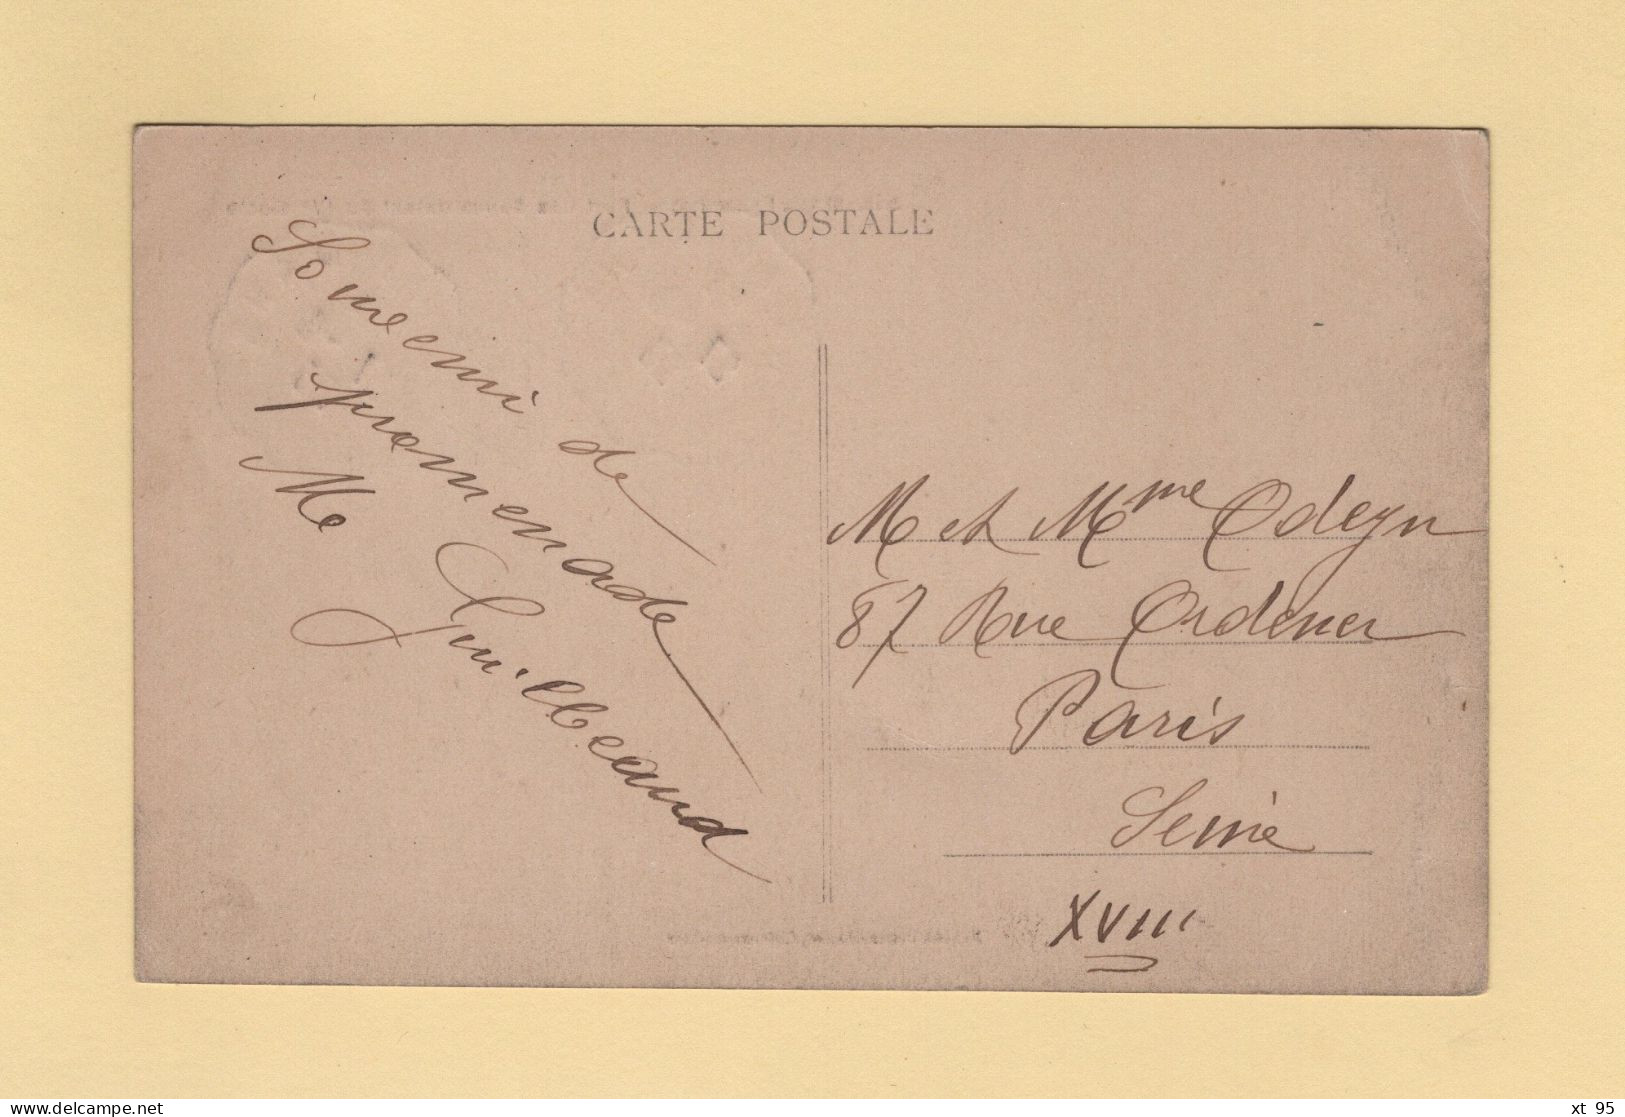 CARTE POSTALE
Souvenir de
promenade
Me
Guilbeaud
M et Mme Odeyn
87 Rue Ordener
Paris
Seine
XVIII
xt 95